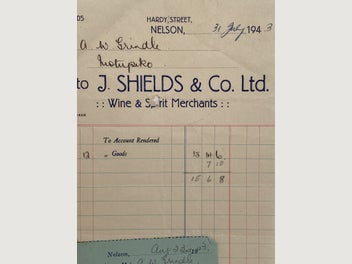 05
HARDY STREET,
NELSON, 31 July 1943
A W Grindle
Motupiko
to J. SHIELDS & Co. Ltd.
:: Wine & Spirit Merchants ::
To Account Rendered
12 " Goods 15 6
7 10
15 6 8
Nelson, Aug
A W Grindle